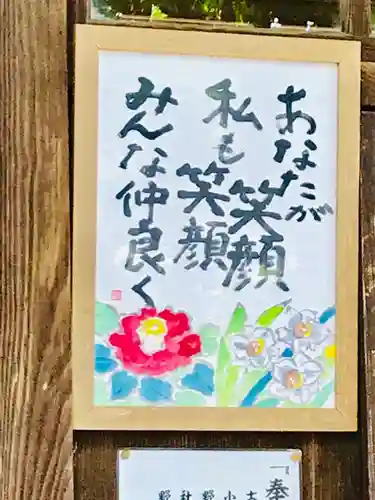 あなたが
笑顔
私も
笑顔
みんな仲良く
「奉